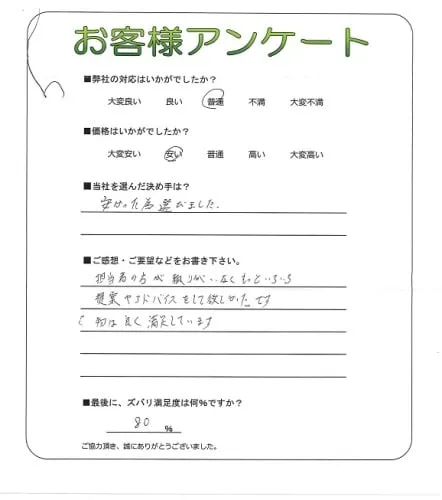 お客様アンケート
■弊社の対応はいかがでしたか?
大変良い 良い 普通 不満 大変不満
■価格はいかがでしたか?
大変安い 安い 普通 高い 大変高い
■当社を選んだ決め手は?
安かった為選びました.
■ご感想・ご要望などをお書き下さい。
担当者の方が なくもっといろいろ
提案やアドバイスをして欲しかったです
物は良く満足しています
■最後に、ズバリ満足度は何%ですか?
80 %
ご協力頂き、誠にありがとうございました。